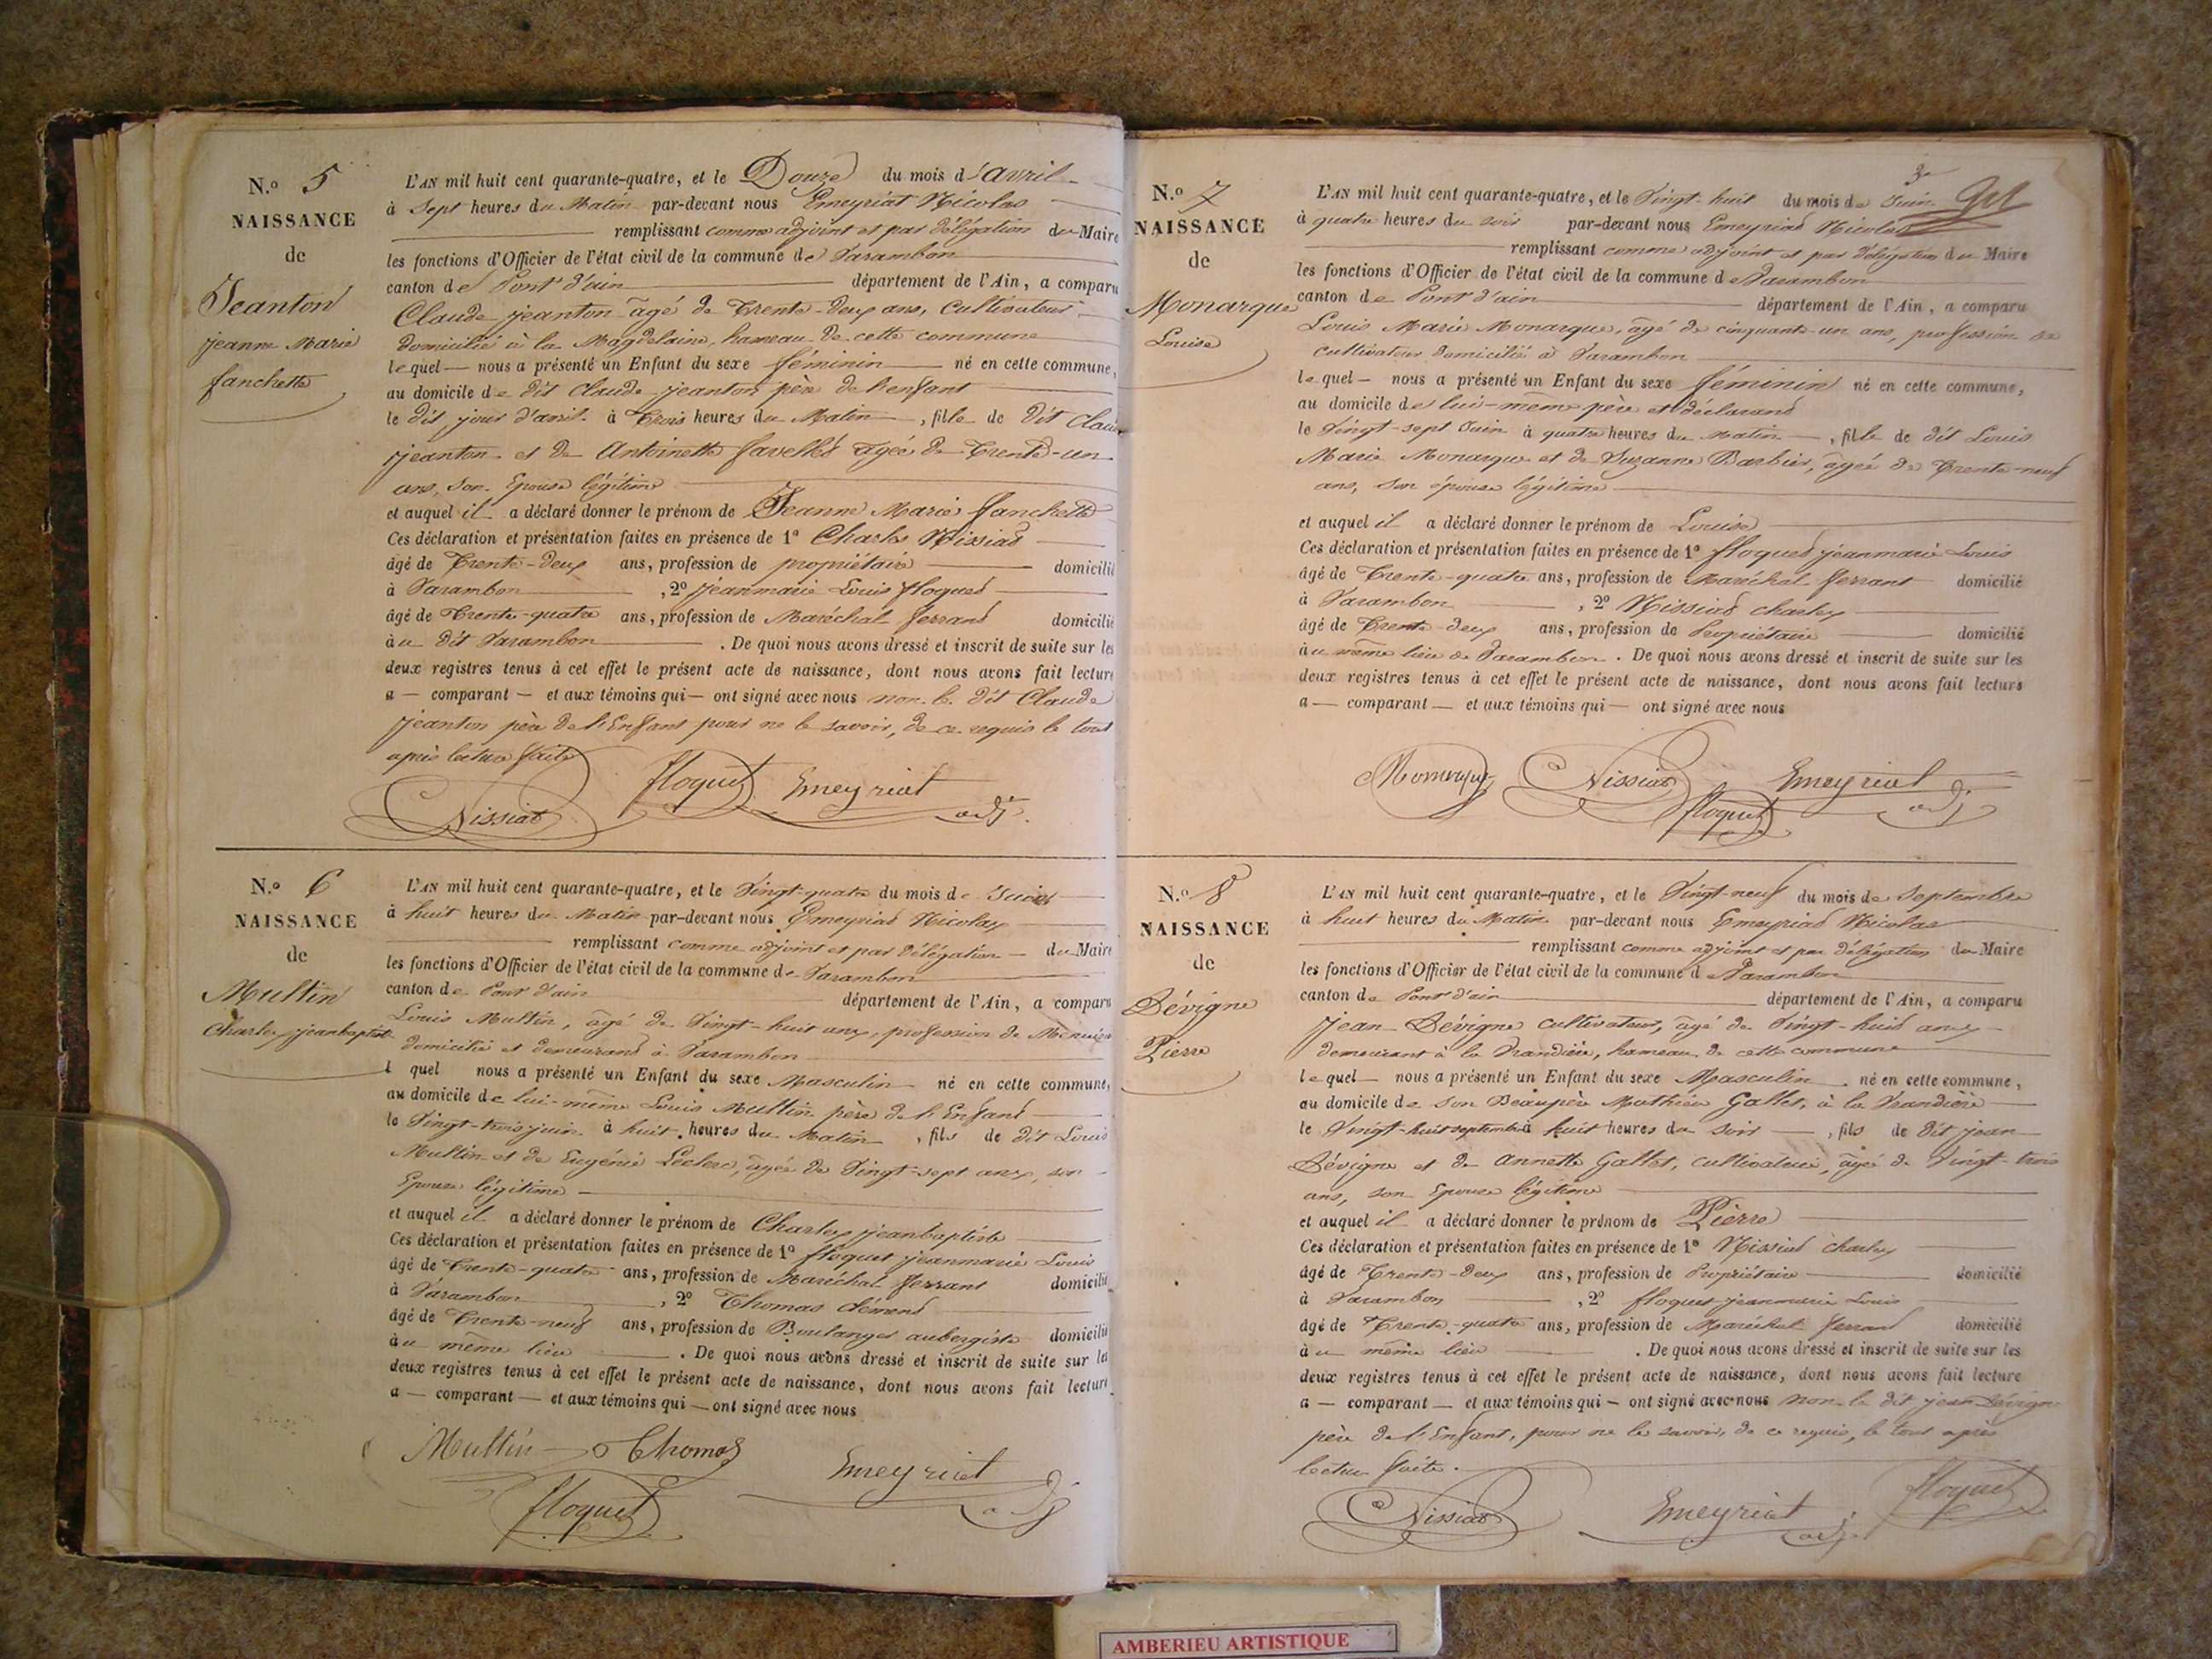 N.o 5
NAISSANCE
de
Jeanton
jeanne Marie
fanchette
L'AN mil huit cent quarante-quatre, et le Douze du mois d'avril
à Sept heures du Matin par-devant nous Emeyriat Nicolas
remplissant comme adjoint et par délégation du Maire
les fonctions d'Officier de l'état civil de la commune de Varambon
canton de Pont d'ain département de l'Ain, a comparu
Claude jeanton âgé de Trente-deux ans, cultivateur
domicilié à la Magdelaine, hameau de cette commune
lequel nous a présenté un Enfant du sexe féminin né en cette commune,
au domicile de dit Claude jeanton père de l'enfant
le dit jour d'avril à Trois heures du Matin, fille de dit Claude
jeanton et de Antoinette favelles âgée de Trente-un
ans, son Epouse légitime
et auquel il a déclaré donner le prénom de Jeanne Marie fanchette
Ces déclaration et présentation faites en présence de 1º Charles Nissiat
âgé de Trente-deux ans, profession de propriétaire domicilié
à Varambon, 2º jeanmarie Louis floquet
âgé de Trente-quatre ans, profession de Maréchal ferrand domicilié
àu dit Varambon. De quoi nous avons dressé et inscrit de suite sur les
deux registres tenus à cet effet le présent acte de naissance, dont nous avons fait lecture
a — comparant — et aux témoins qui — ont signé avec nous non le dit Claude
jeanton père de l'Enfant pour ne le savoir, de ce requis le tout
après lecture faite
Nissiat floquet Emeyriat adj.
N.o 6
NAISSANCE
de
Multin
Charles jeanbaptiste
L'AN mil huit cent quarante-quatre, et le Vingt-quatre du mois de Juin
à huit heures du Matin par-devant nous Emeyriat Nicolas
remplissant comme adjoint et par délégation du Maire
les fonctions d'Officier de l'état civil de la commune de Varambon
canton de Pont d'ain département de l'Ain, a comparu
Louis Multin, âgé de Vingt-huit ans, profession de Menuisier
domicilié et demeurand à Varambon
l quel nous a présenté un Enfant du sexe Masculin né en cette commune,
au domicile de lui-même Louis Multin père de l'Enfant
le Vingt-trois juin à huit heures du Matin, fils de dit Louis
Multin et de Eugénie Leclerc, âgée de Vingt-sept ans, son
Epouse légitime
et auquel il a déclaré donner le prénom de Charles jeanbaptiste
Ces déclaration et présentation faites en présence de 1º floquet jeanmarie Louis
âgé de Trente-quatre ans, profession de Maréchal ferrant domicilié
à Varambon, 2º Thomas clément
âgé de Trente-neuf ans, profession de Boulanger aubergiste domicilié
àu même lieu. De quoi nous avons dressé et inscrit de suite sur les
deux registres tenus à cet effet le présent acte de naissance, dont nous avons fait lecture
a — comparant — et aux témoins qui — ont signé avec nous
Multin Thomas Emeyriat adj
floquet
N.o 7
NAISSANCE
de
Monarque
Louise
L'AN mil huit cent quarante-quatre, et le Vingt-huit du mois de Juin
à quatre heures du soir par-devant nous Emeyriat Nicolas
remplissant comme adjoint et par délégation du Maire
les fonctions d'Officier de l'état civil de la commune de Varambon
canton de Pont d'ain département de l'Ain, a comparu
Louis Marie Monarque, âgé de cinquante un ans, profession de
cultivateur domicilié à Varambon
lequel — nous a présenté un Enfant du sexe féminin né en cette commune,
au domicile de lui-même père et déclarand
le Vingt-sept Juin à quatre heures du Matin —, fille de dit Louis
Marie Monarque et de Suzanne Barbier, âgée de Trente-neuf
ans, son épouse légitime
et auquel il a déclaré donner le prénom de Louise
Ces déclaration et présentation faites en présence de 1º floquet jeanmarie Louis
âgé de Trente-quatre ans, profession de Maréchal ferrant domicilié
à Varambon, 2º Nissiat charles
âgé de Trente-deux ans, profession de Propriétaire domicilié
àu même lieu de Varambon. De quoi nous avons dressé et inscrit de suite sur les
deux registres tenus à cet effet le présent acte de naissance, dont nous avons fait lecture
a — comparant — et aux témoins qui — ont signé avec nous
Monarque Nissiat Emeyriat adj
floquet
N.o 8
NAISSANCE
de
Dévigne
Pierre
L'AN mil huit cent quarante-quatre, et le Vingt-neuf du mois de Septembre
à huit heures du Matin par-devant nous Emeyriat Nicolas
remplissant comme adjoint et par délégation du Maire
les fonctions d'Officier de l'état civil de la commune de Varambon
canton de Pont d'ain département de l'Ain, a comparu
jean Dévigne cultivateur, âgé de Vingt-huit ans
demeurant à la Vrandière, hameau de cette commune
lequel — nous a présenté un Enfant du sexe Masculin né en cette commune,
au domicile de son Beaupère Mathieu Gallet, à la Vrandière
le Vingt-huit septembre à huit heures du soir —, fils de dit jean
Dévigne et de Annette Gallet, cultivateur, âgée de Vingt-trois
ans, son Epouse légitime
et auquel il a déclaré donner le prénom de Pierre
Ces déclaration et présentation faites en présence de 1º Nissiat charles
âgé de Trente-deux ans, profession de Propriétaire domicilié
à Varambon, 2º floquet jeanmarie Louis
âgé de Trente-quatre ans, profession de Maréchal ferrand domicilié
àu même lieu. De quoi nous avons dressé et inscrit de suite sur les
deux registres tenus à cet effet le présent acte de naissance, dont nous avons fait lecture
a — comparant — et aux témoins qui — ont signé avec nous non le dit jean Dévigne
père de l'Enfant, pour ne le savoir, de ce requis, le tout après
lecture faite.
Nissiat Emeyriat adj floquet
AMBERIEU ARTISTIQUE